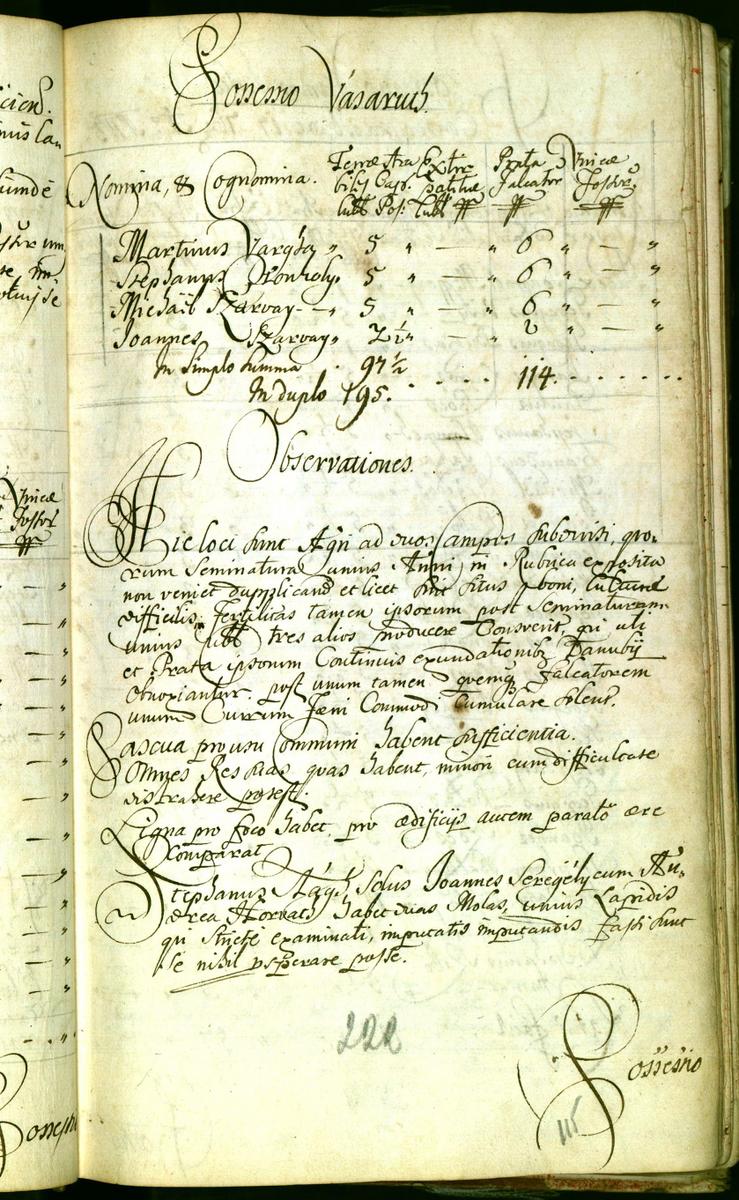 Possessio Vásaruth.
Nomina, & Cognomina. Terræ Ara Extir Prata Vineæ
biles Cap. patitiæ Falcator Fossor.
lubb Pos: lubb ff ff ff
Martinus Vargha „ 5 „ — „ 6 „ — „
Stephanus „ 5 „ — „ 6 „ — „
Michaël Szarvay - — „ 5 „ — „ 6 „ — „
Joannes Szarvay „ 2½ „ — „ 2 „ — „
In Simplo Summa . 97½ 114.
In duplo 195.
Observationes.
Hic loci sunt Agri ad duos Campos subdivisi, quo-
rum Seminatura unius Anni, in Rubrica exposita
non veniet dupplicand et licet sint situs boni, culturæ
difficilis, Fertilitas tamen ipsorum post Seminaturam
unius lubb tres alios producere Consvevit, qui uti
et Prata ipsorum Continuis exundationibz Danubij
obnoxiantur. post unum tamen quemq Falcatorem
unum Currum Fæni Commode Cumulare solent.
Pascua pro usu Communi habent sufficientia.
Omnes Res suas quas habent, minori cum difficultate
distrahere possunt.
Ligna pro foco habet, pro ædificijs autem parato ære
Comparat
Stephanus Nágh, Solus Joannes Seregély cum An-
drea Horvath habet duas Molas, unius Lapidis
qui stricte examinati, imputatis imputandis fassi sunt
se nihil prosperare posse.
222
Possessio
115